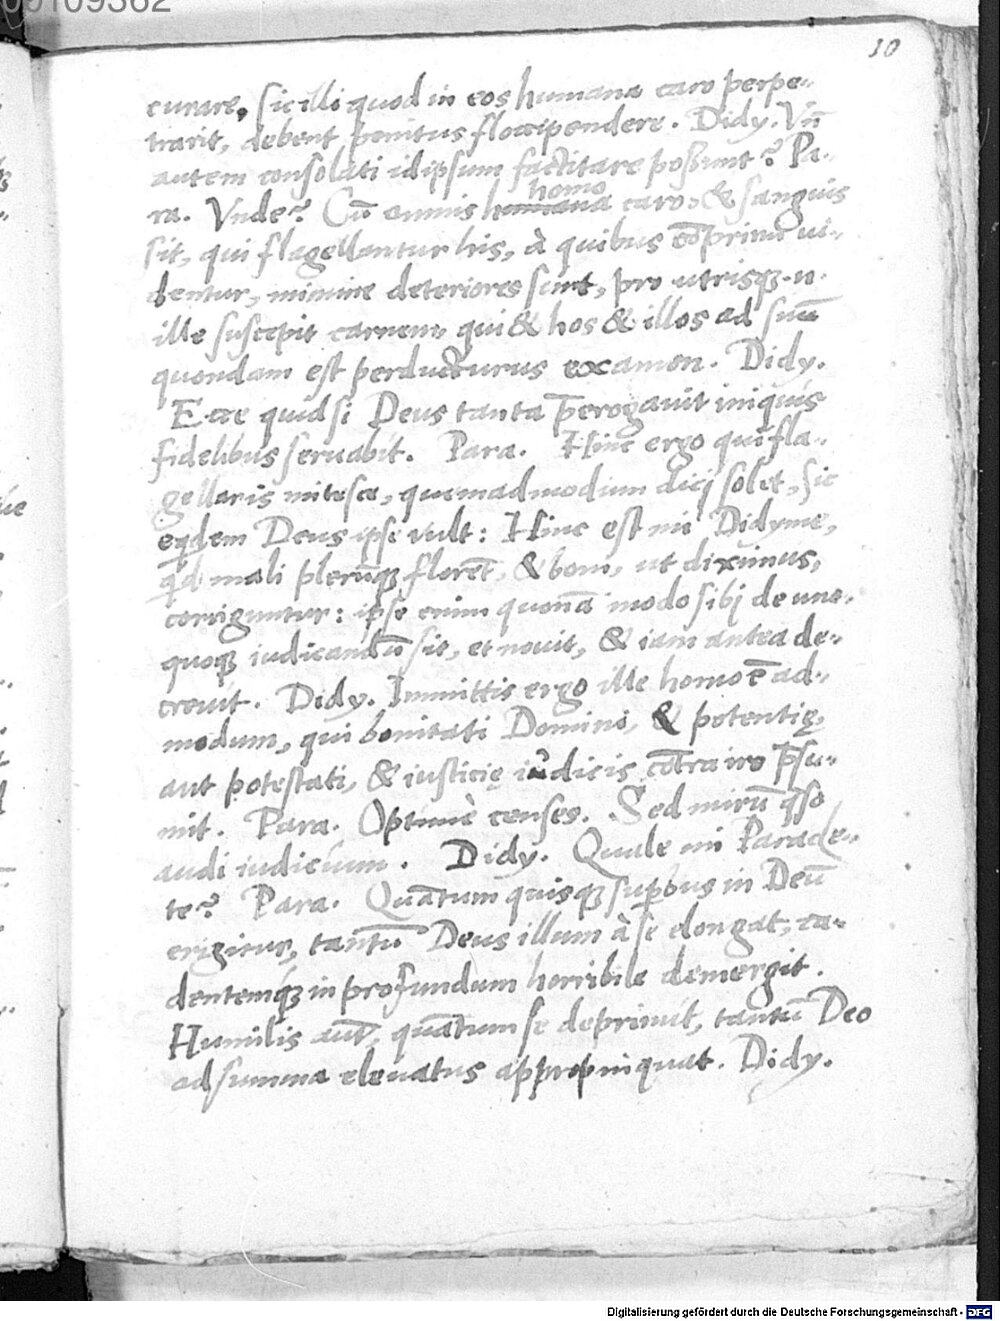 00109362
10
curare, sic illi quod in eos humana caro perpe-
trarit, debent penitus floccipendere. Didy. Vñ
autem consolati idipsum factitare possunt? Pa-
ra. Vnde? Cũ omnis homo caro & sanguis
sit, qui flagellantur his, à quibus cõprimi vi-
dentur, minime deteriores sunt, pro utrisqꝫ .n.
ille suscepit carnem, qui & hos & illos ad suũ
quondam est perducturus examen. Didy.
Ecce quid si Deus tanta p̃rogavit iniquis
fidelibus servabit. Para. Hinc ergo qui fla-
gellaris mitesce, quemadmodum dici solet, sic
eqdem Deus ipse vult: Hinc est mi Didyme,
qd mali plerũqꝫ florẽt, & boni, ut diximus,
corriguntur: ipse enim quonã modo sibj de uno-
quoqꝫ iudicandũ sit, et novit, & iam antea de-
crevit. Didy. Immittis ergo ille homo ẽ ad-
modum, qui bonitati Domini, & potentię,
aut potestati, & iusticię iudicis cõtra ire p̃su-
mit. Para. Optimè censes. Sed mirũ qso
audi iudicium. Didy. Quale mi Paracle-
te? Para. Quãtum quisqꝫ supbus in Deũ
erigitur, tantũ Deus illum à se elongat, ca-
dentemqꝫ in profundum horribile demergit.
Humilis aut, quãtum se deprimit, tantũ Deo
ad summa elevatus appropinquat. Didy.
Digitalisierung gefördert durch die Deutsche Forschungsgemeinschaft - DFG